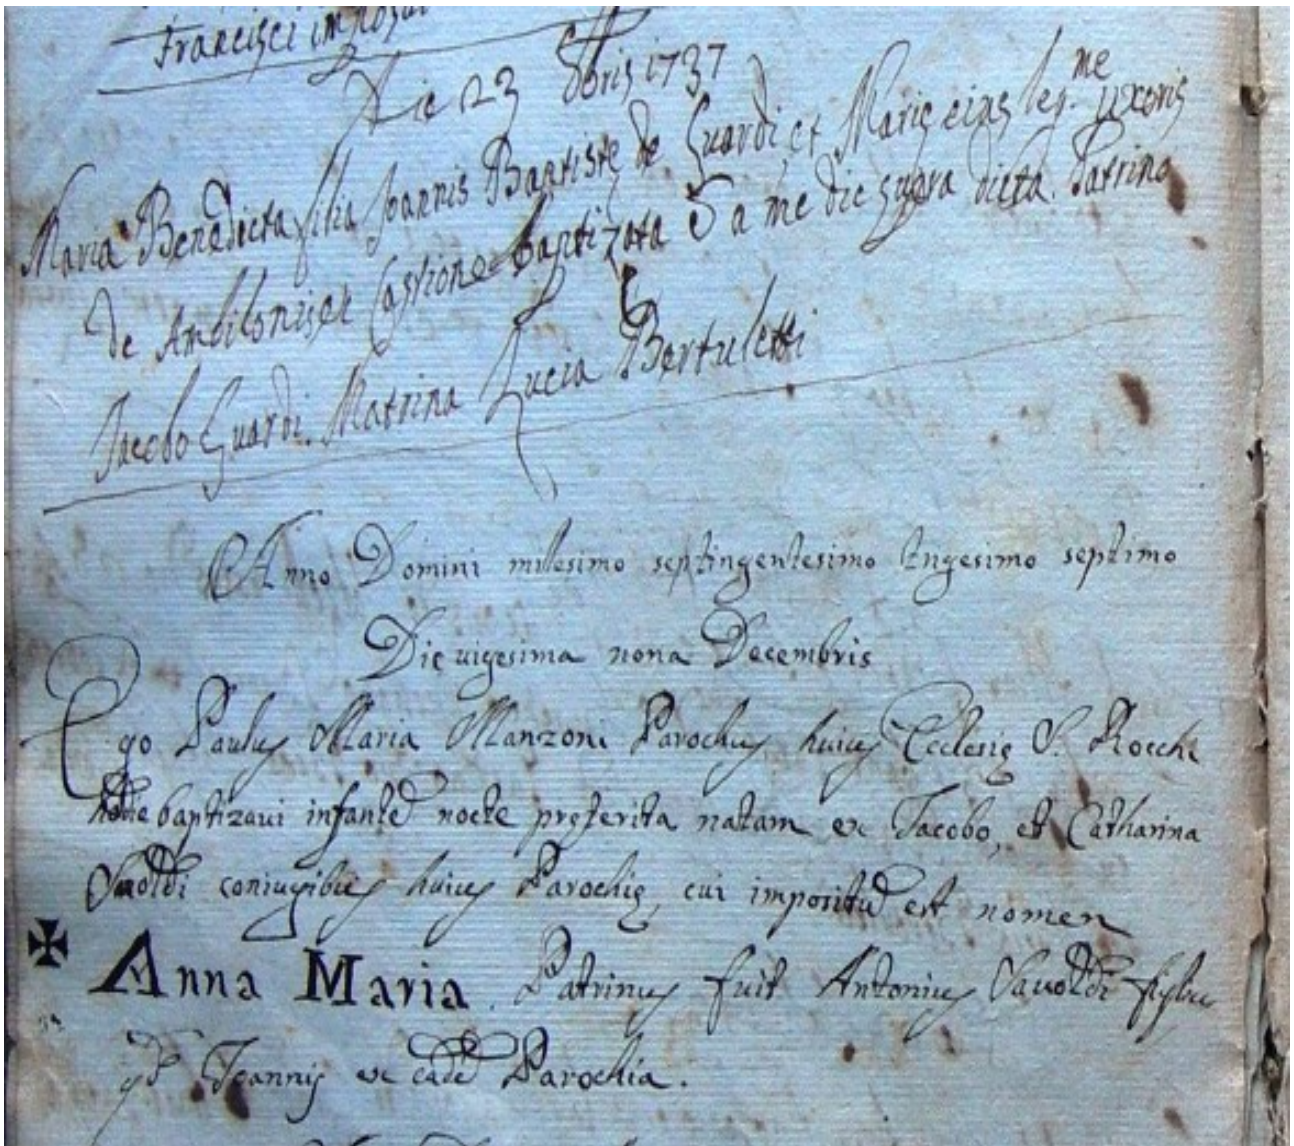 Francisci imposui
Die 23 8bris 1737
Maria Benedicta filia Joannis Baptistę de Guardi, et Marię eius leg.me uxoris
de Castione baptizata a me die supra dicta. Patrino
Jacobo Guardi. Matrina Lucia Bertuletti
Anno Domini millesimo septingentesimo trigesimo septimo
Die uigesima nona Decembris
Ego Paulus Maria Manzoni Parochus huius Ecclesię S. Rocchi
hodie baptizaui infantē nocte pręterita natam ex Jacobo, et Catharina
Sauoldi coniugibus huius Parochię, cui impositū est nomen
Anna Maria. Patrinus fuit Antonius Sauoldi filius
qd Joannis ex eadē Parochia.